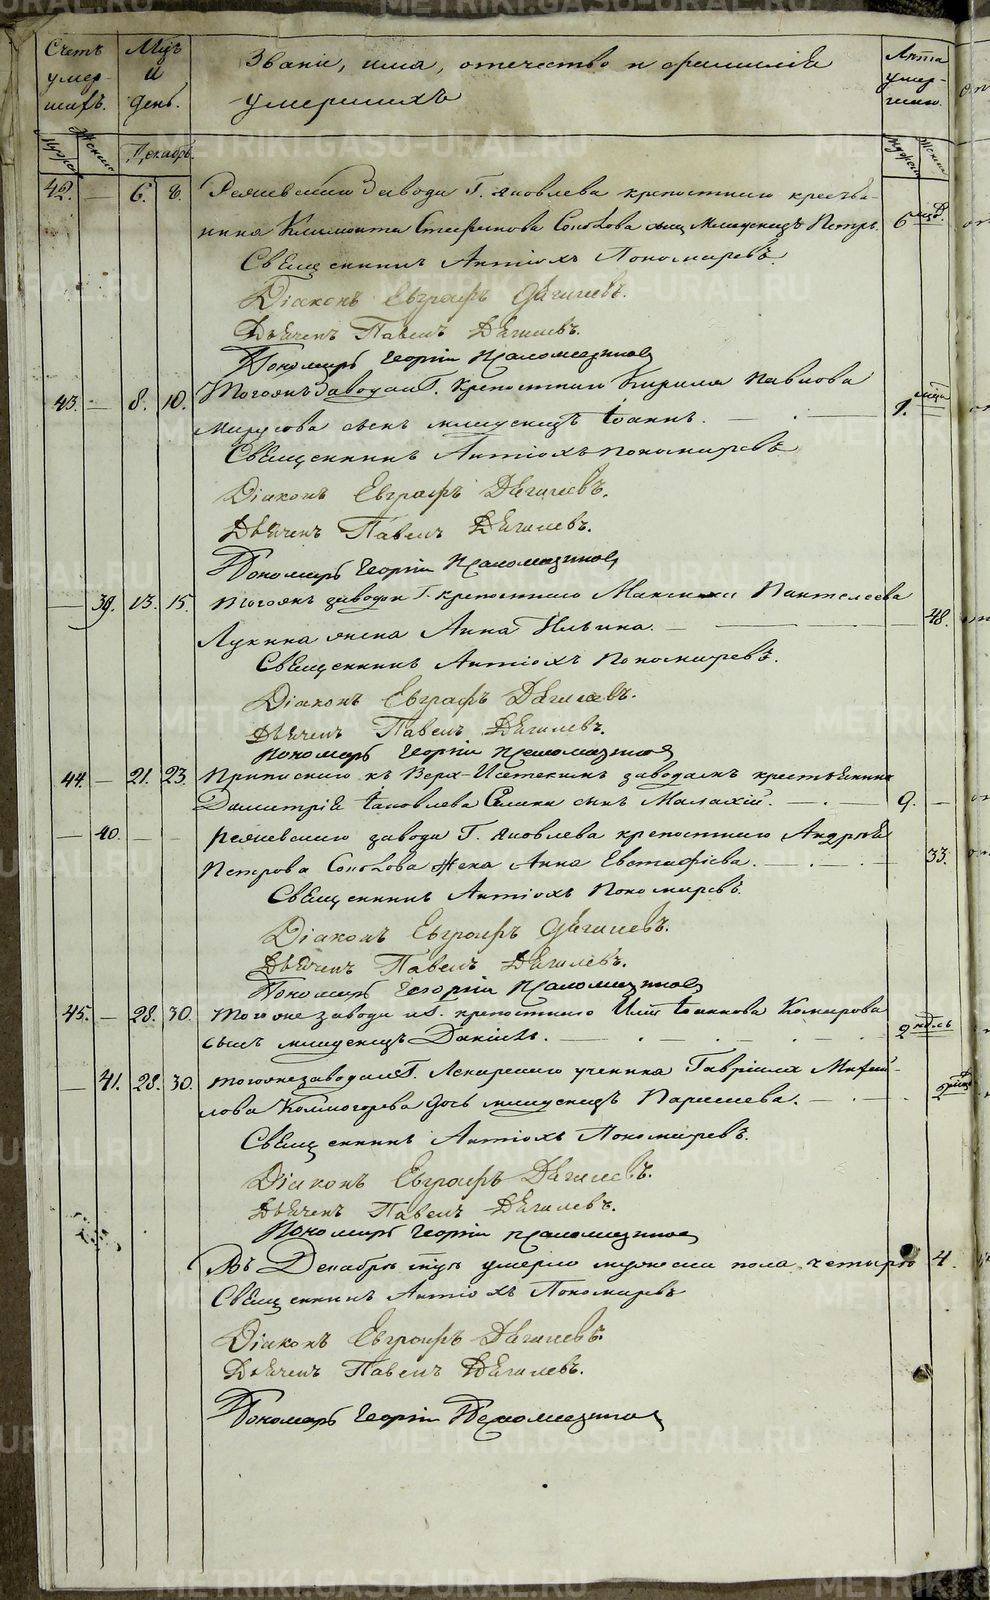 Счетъ умер-шихъ.
Мцъ и день.
Званіе, имя, отечество и фамиліи умершихъ
Лѣта умер-шаго.
Мужес Женск Декабрь. Мужеск Женск
42. — 6. 8. Режевскаго завода Г. Яковлева крепостнаго крестья-
нина Климонта Стефанова Соколова сын Младенецъ Петръ. 6 мцъ.
Священникъ Антіохъ Пономаревъ.
Діаконъ Евграфъ Дягилевъ.
Дьячекъ Павелъ Дягилевъ.
Пономарь Георгій
43. — 8. 10. Тогожъ завода Г. крепостнаго Кирила Павлова
сынъ младенецъ Іоаннъ. 1. мца
Священникъ Антіохъ Пономаревъ
Діаконъ Евграфъ Дягилевъ.
Дьячекъ Павелъ Дягилевъ.
Пономарь Георгій
— 39. 13. 15. Тогожъ завода Г. крепостнаго Максима Пантелеева
Лукина жена Анна Ильина. 48.
Священникъ Антіохъ Пономаревъ.
Діаконъ Евграфъ Дягилевъ.
Дьячекъ Павелъ Дягилевъ.
Пономарь Георгій
44. — 21. 23. Приписнаго къ Верх-Исетскимъ заводамъ крестьянина
Димитрія Іаковлева сынъ Малахій. 9. —
— 40. — — Режевскаго завода Г. Яковлева крепостнаго Андрея
Петрова Соколова жена Анна Евстафіева. 33.
Священникъ Антіохъ Пономаревъ.
Діаконъ Евграфъ Дягилевъ.
Дьячекъ Павелъ Дягилевъ.
Пономарь Георгій
45. — 28. 30. Тогоже завода крепостнаго Іоаннова Комарова
сынъ младенецъ Даніилъ. 2 ндль
— 41. 28. 30. Тогоже завода Г. Лекарскаго ученика Гавріила Михай-
лова Колмогорова дочь младенецъ
Священникъ Антіохъ Пономаревъ.
Діаконъ Евграфъ Дягилевъ.
Дьячекъ Павелъ Дягилевъ.
Пономарь Георгій
Въ Декабрѣ мцѣ умерло мужеска пола четыре 4.
Священникъ Антіохъ Пономаревъ
Діаконъ Евграфъ Дягилевъ.
Дьячекъ Павелъ Дягилевъ.
Пономарь Георгій
METRIKI.GASO-URAL.RU